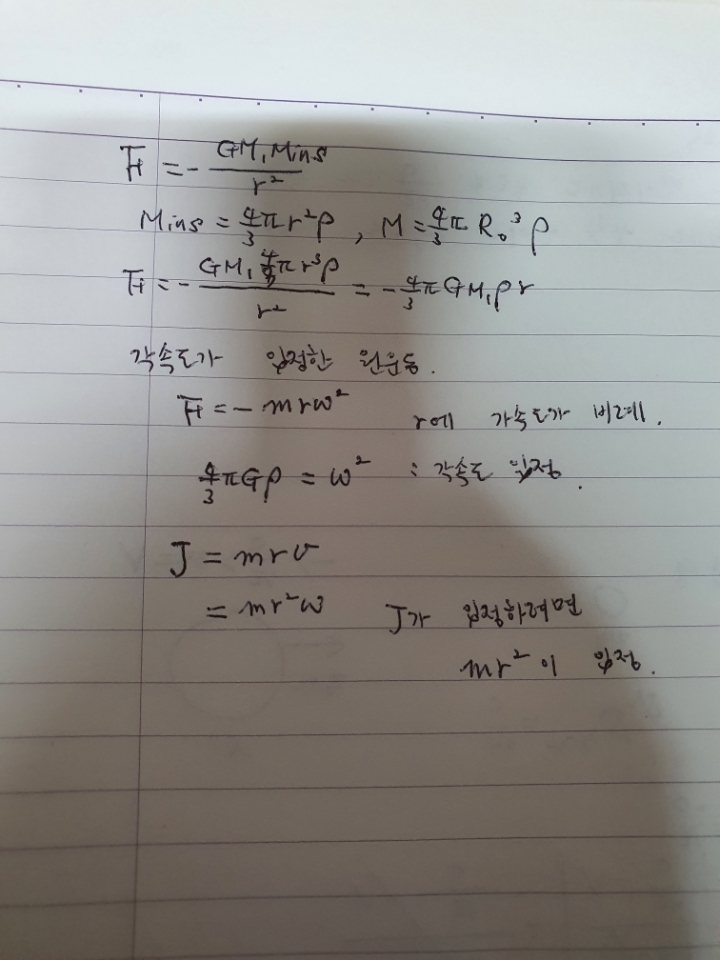 F = - GM₁Mins / r²
Mins = 4/3 π r²ρ , M = 4/3 π R₀³ ρ
F = - GM₁ 4/3 π r³ρ / r² = - 4/3 π GM₁ρr
각속도가 일정한 원운동.
F = - mrω² r에 가속도가 비례.
4/3 πGρ = ω² : 각속도 일정.
J = mrv
= mr²ω J가 일정하려면
mr²이 일정.